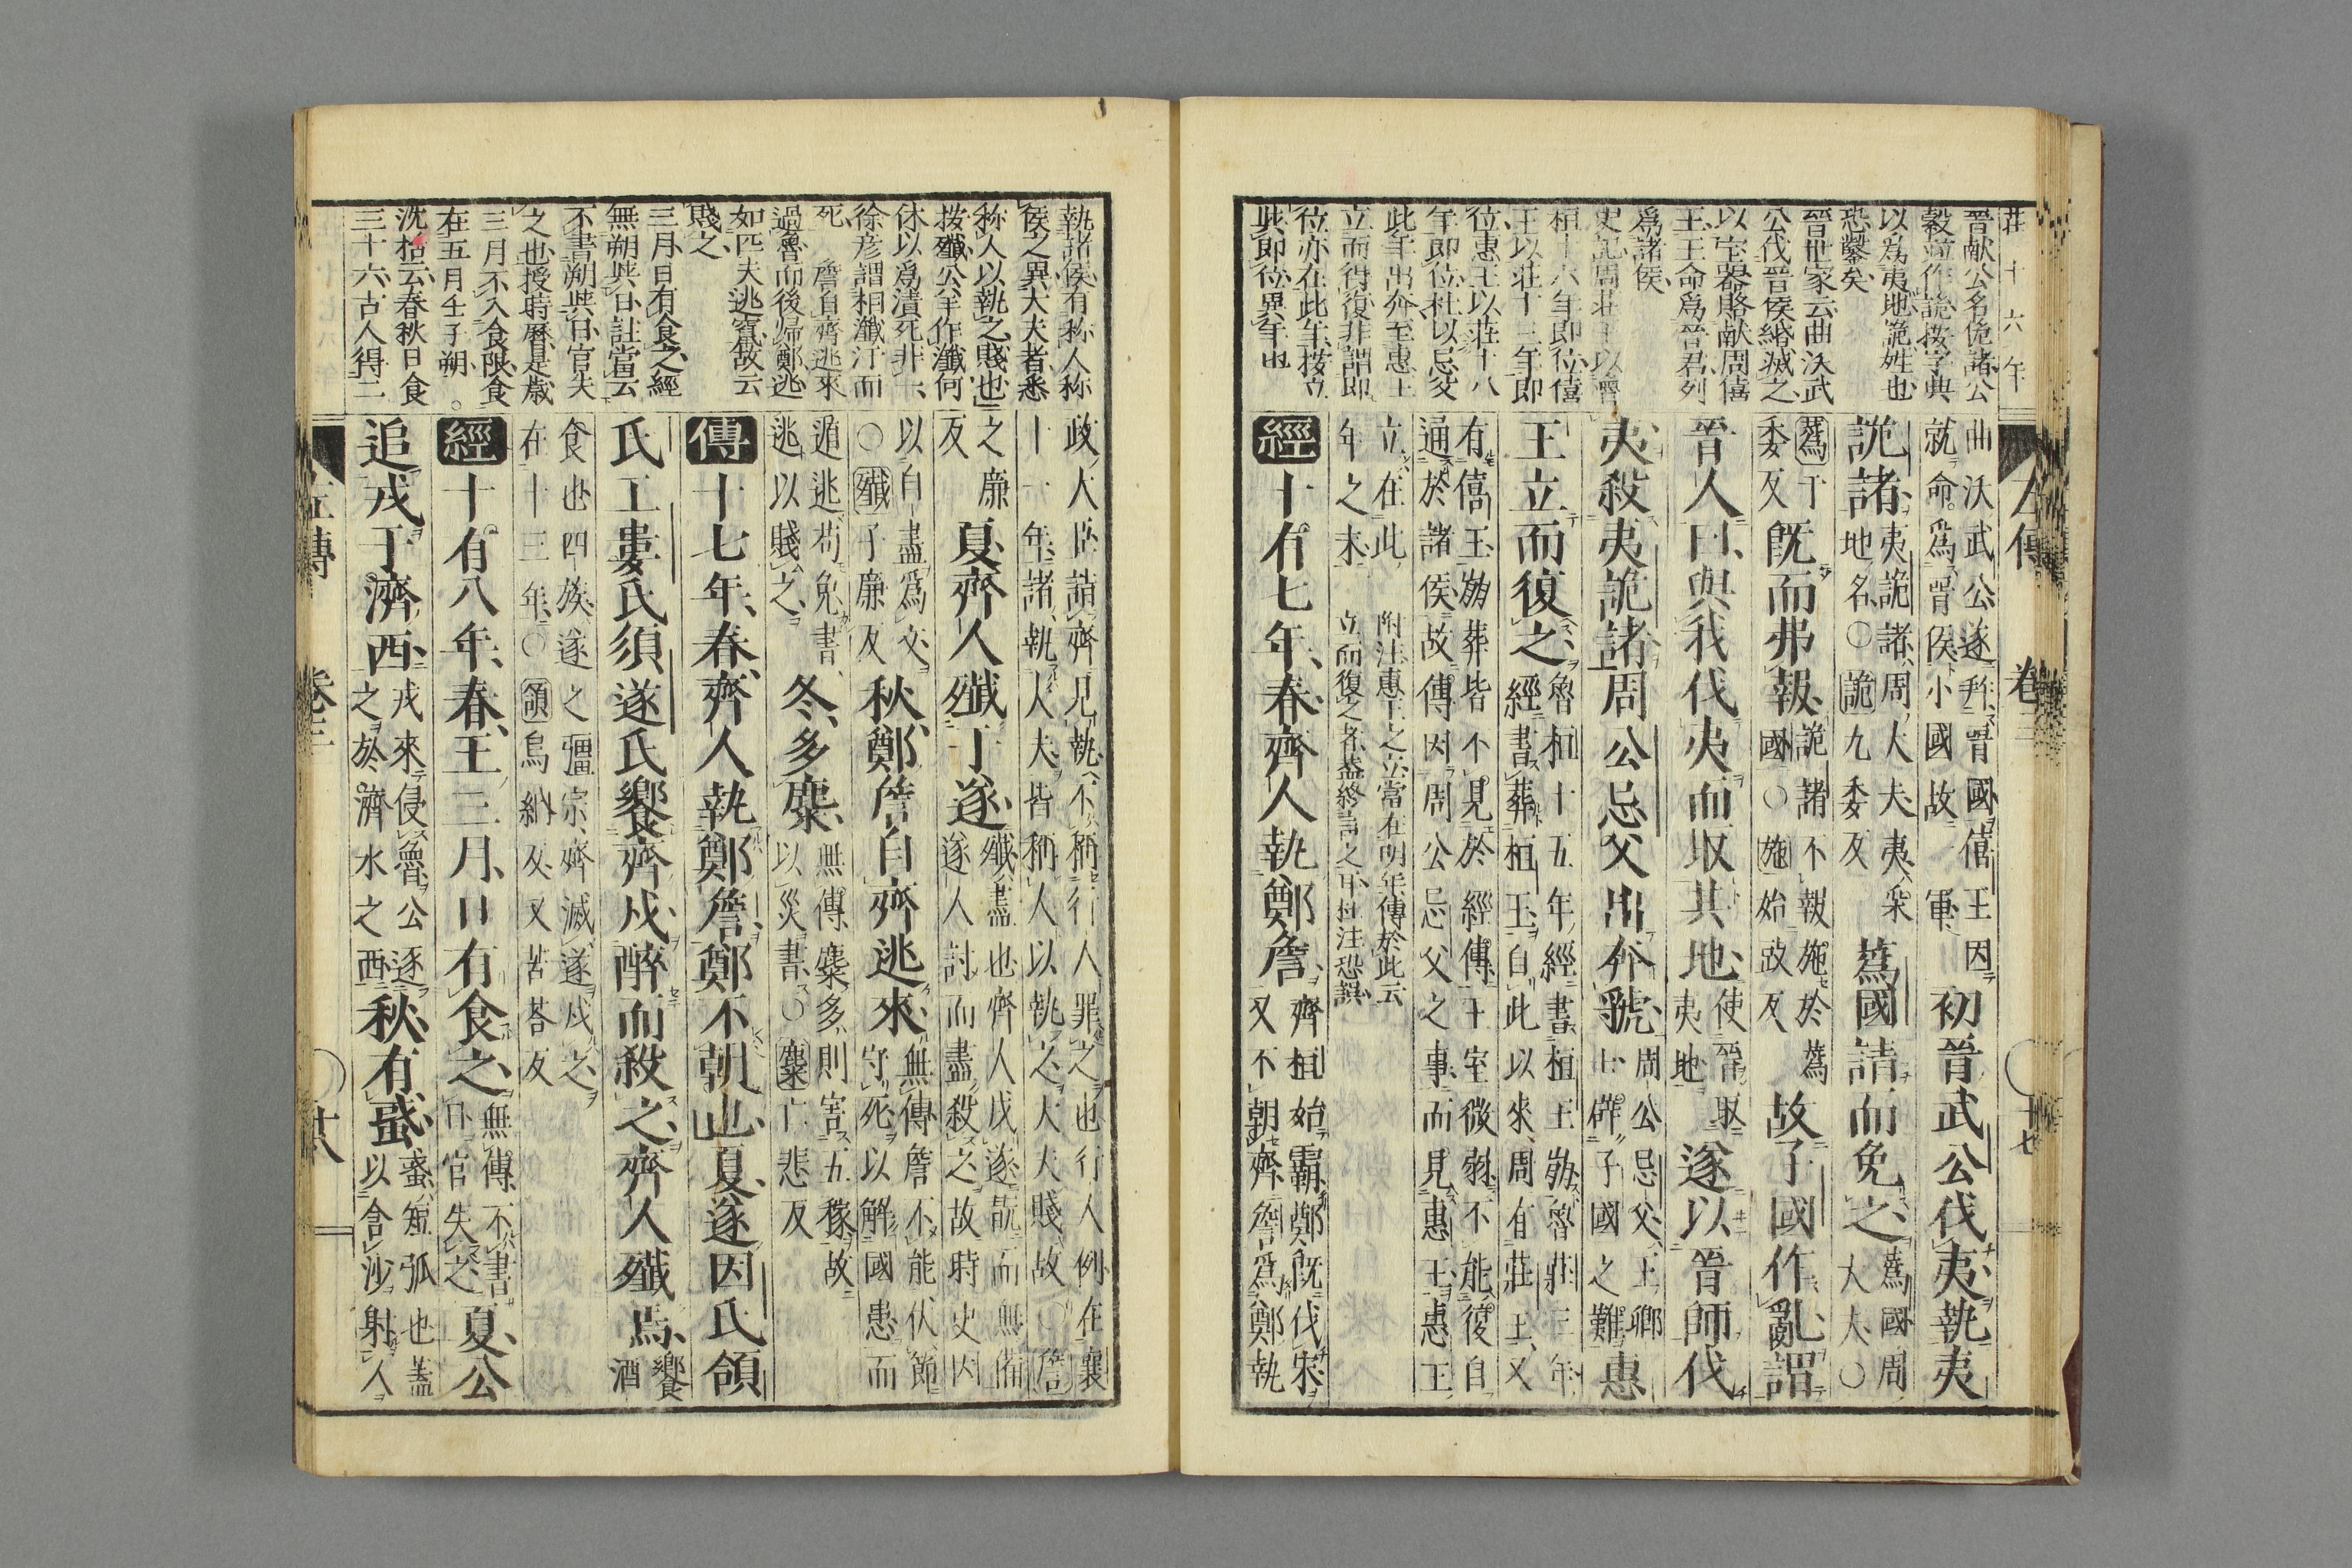 莊十六年
晉獻公名佹諸公
穀並作詭按字典
以爲夷地詭姓也
恐鑿矣
晉世家云曲沃武
公伐晉侯緡滅之
以宝器賂献周僖
王王命爲晉君列
爲諸侯
史記周莊王以魯
桓十六年即位僖
王以莊十三年即
位惠王以莊十八
年即位杜以忌父
此年出奔至惠王
立而得復非謂即
位亦在此年按立
與即位異年也
左傳 卷三 十七
曲沃武公遂并晉國僖王因
就命爲晉侯小國故一軍
初晉武公伐夷執夷
詭諸
夷詭諸周大夫夷采
地名○詭九委反
蒍國請而免之
蒍國周
大夫○
蒍于
委反
既而弗報
詭諸不報施於蒍
國○施始豉反
故子國作亂謂
晉人曰與我伐夷而取其地
使晉取
夷地
遂以晉師伐
夷殺夷詭諸周公忌父出奔虢
周公忌父王卿
士辟子國之難
惠
王立而復之
魯桓十五年經書桓王崩魯莊三年
經書葬桓王自此以來周有莊王又
有僖王崩葬皆不見於經傳王室微弱不能復自
通於諸侯故傳因周公忌父之事而見惠王惠王
立在此
年之末
附注惠王之立當在明年傳於此云
立而復之者蓋終言之耳杜注恐誤
經十有七年春齊人執鄭詹
齊桓始霸鄭既伐宋
又不朝齊詹爲鄭執
執諸侯有称人称
侯之異大夫者悉
称人以執之賤也
按殲公羊作瀸何
休以爲漬死非一
徐彦謂相瀸汙而
死
詹自齊逃來
過魯而後歸鄭逃
如匹夫逃竄故云
賤之
三月日有食之經
無朔與日註當云
不書朔與日官失
之也授時曆是歳
三月不入食限食
在五月壬子朔
沈括云春秋日食
三十六古人得二
政大臣詣齊見執不稱行人罪之也行人例在襄
十一年諸執大夫皆稱人以執之大夫賤故○詹
之廉
反
夏齊人殲于遂
殲盡也齊人戍遂翫而無備
遂人討而盡殺之故時史因
以自盡爲文
○殲子廉反
秋鄭詹自齊逃來
無傳詹不能伏節
守死以解國患而
遁逃苟免書
逃以賤之
冬多麋
無傳麋多則害五稼故
以災書○麋亡悲反
傳十七年春齊人執鄭詹鄭不朝也夏遂因氏頜
氏工婁氏須遂氏饗齊戍醉而殺之齊人殲焉
饗
酒
食也四族遂之彊宗齊滅遂戍之
在十三年○頜烏納反又苦荅反
經十有八年春王三月日有食之
無傳不書
日官失之
夏公
追戎于濟西
戎來侵魯公逐
之於濟水之西
秋有蜮
蜮短弧也蓋
以含沙射人
左傳 卷三 十八